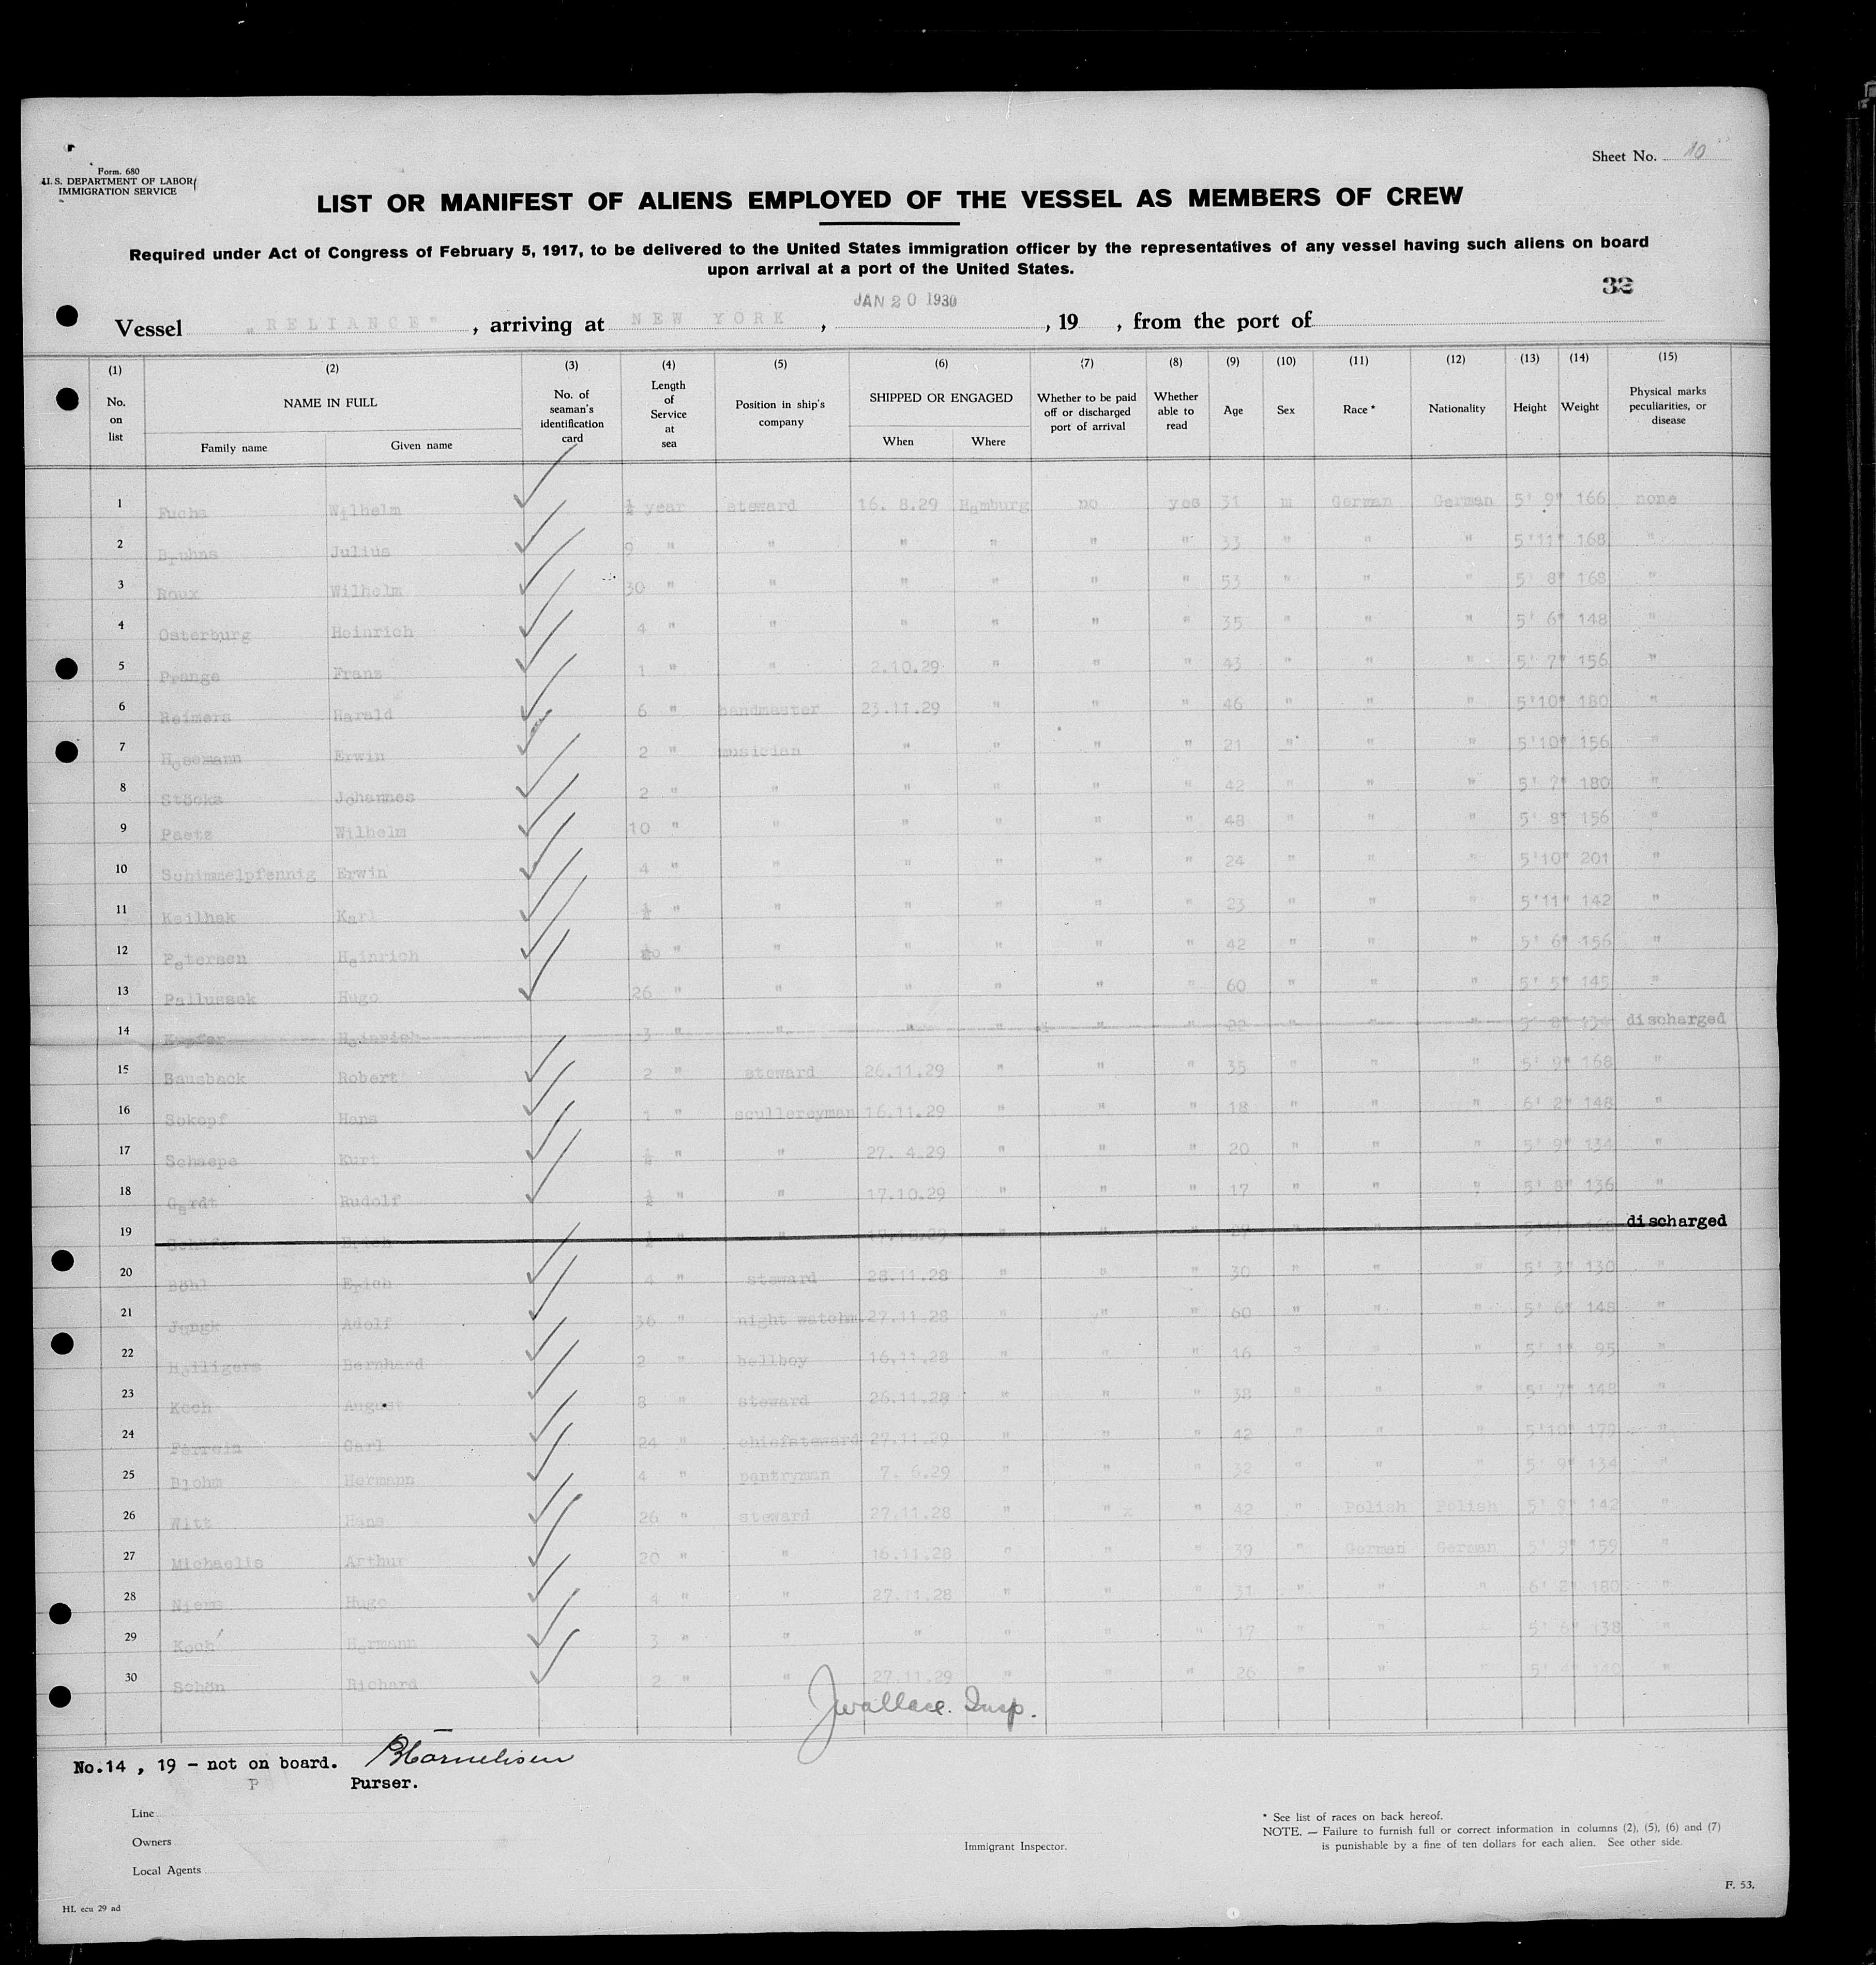 Form. 680
U. S. DEPARTMENT OF LABOR
IMMIGRATION SERVICE
Sheet No. 10
LIST OR MANIFEST OF ALIENS EMPLOYED OF THE VESSEL AS MEMBERS OF CREW
Required under Act of Congress of February 5, 1917, to be delivered to the United States immigration officer by the representatives of any vessel having such aliens on board
upon arrival at a port of the United States.
32
JAN 20 1930
Vessel „RELIANCE" , arriving at NEW YORK , , 19 , from the port of
(1) (2) (3) (4) (5) (6) (7) (8) (9) (10) (11) (12) (13) (14) (15)
No. on list
NAME IN FULL
Family name Given name
No. of seaman's identification card
Length of Service at sea
Position in ship's company
SHIPPED OR ENGAGED
When Where
Whether to be paid off or discharged port of arrival
Whether able to read
Age Sex Race * Nationality Height Weight
Physical marks peculiarities, or disease
1 Fuchs Wilhelm ½ year steward 16. 8.29 Hamburg no yes 31 m German German 5' 9" 166 none
2 Bruhns Julius 9 " " " " " " 33 " " " 5'11" 168 "
3 Roux Wilhelm 30 " " " " " " 53 " " " 5' 8" 168 "
4 Osterburg Heinrich 4 " " " " " " 35 " " " 5' 6" 148 "
5 Prange Franz 1 " " 2.10.29 " " " 43 " " " 5' 7" 156 "
6 Reimers Harald 6 " bandmaster 23.11.29 " " " 46 " " " 5'10" 180 "
7 Hosemann Erwin 2 " musician " " " " 21 " " " 5'10" 156 "
8 Stöcks Johannes 2 " " " " " " 42 " " " 5' 7" 180 "
9 Paetz Wilhelm 10 " " " " " " 48 " " " 5' 8" 156 "
10 Schimmelpfennig Erwin 4 " " " " " " 24 " " " 5'10" 201 "
11 Keilhak Karl ½ " " " " " " 23 " " " 5'11" 142 "
12 Petersen Heinrich " " " " " " 42 " " " 5' 6" 156 "
13 Pallussek Hugo 26 " " " " " " 60 " " " 5' 5" 145 "
14 Kupfer Heinrich 3 " " " " " " 22 " " " 5' 8" discharged
15 Bausback Robert 2 " steward 26.11.29 " " " 35 " " " 5' 9" 168 "
16 Sokopf Hans 1 " scullereyman 16.11.29 " " " 18 " " " 6' 2" 148 "
17 Schaepe Kurt ½ " " 27. 4.29 " " " 20 " " " 5' 9" 134 "
18 Gerdt Rudolf ½ " " 17.10.29 " " " 17 " " " 5' 8" 136 "
19 Schäfer Erich ½ " " " " " " " " discharged
20 Böhl Erich 4 " steward 28.11.28 " " " 30 " " " 5' 3" 130 "
21 Jungk Adolf 36 " night watchm. 27.11.28 " " " 60 " " " 5' 6" 148 "
22 Heiligers Bernhard 2 " bellboy 16.11.28 " " " 16 " " " 5' 1" 95 "
23 Koch August 8 " steward 26.11.28 " " " 38 " " " 5' 7" 148 "
24 Ferrein Carl 24 " chiefsteward 27.11.29 " " " 42 " " " 5'10" 179 "
25 Blohm Hermann 4 " pantryman 7. 6.29 " " " 32 " " " 5' 9" 134 "
26 Witt Hans 26 " steward 27.11.28 " " x " 42 " Polish Polish 5' 8" 142 "
27 Michaelis Arthur 20 " " 16.11.28 " " " 39 " German German 5' 9" 159 "
28 Niems Hugo 4 " " 27.11.28 " " " 31 " " " 6' 2" 180 "
29 Koch Hermann 3 " " " " " " 17 " " " 5' 6" 138 "
30 Schön Richard 2 " " 27.11.29 " " " 26 " " " 5' 4" "
JWallace. Insp.
No.14 , 19 - not on board. Cornelisen
P Purser.
Line
Owners
Local Agents
Immigrant Inspector.
* See list of races on back hereof.
NOTE. — Failure to furnish full or correct information in columns (2), (5), (6) and (7)
is punishable by a fine of ten dollars for each alien. See other side.
F. 53.
HL ecu 29 ad